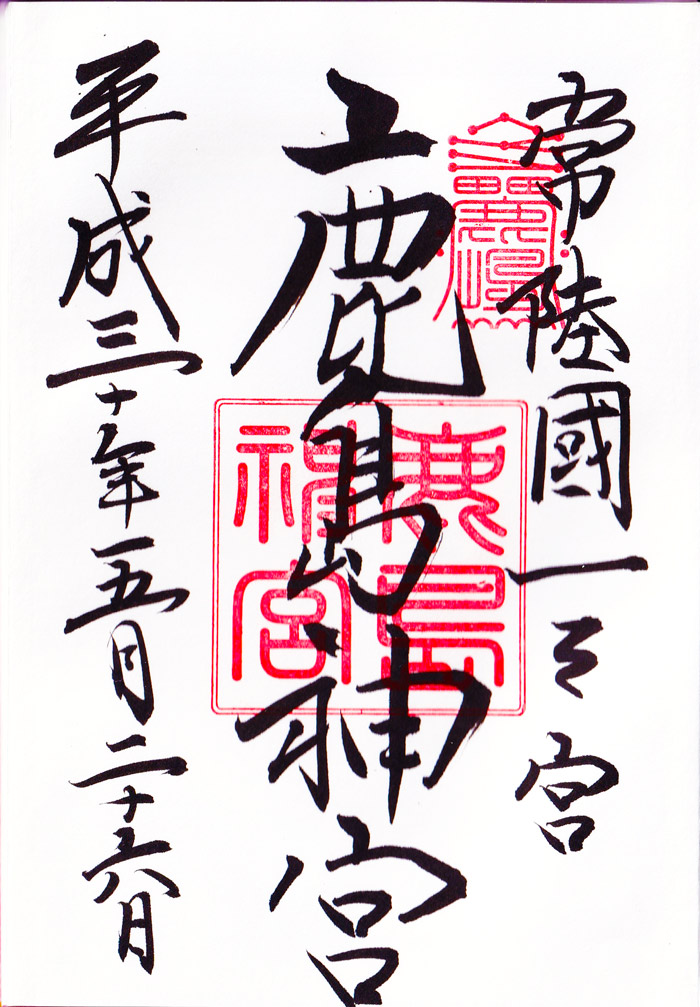 常陸國一之宮
鹿島神宮
平成三十年五月二十六日
鹿島
神宮